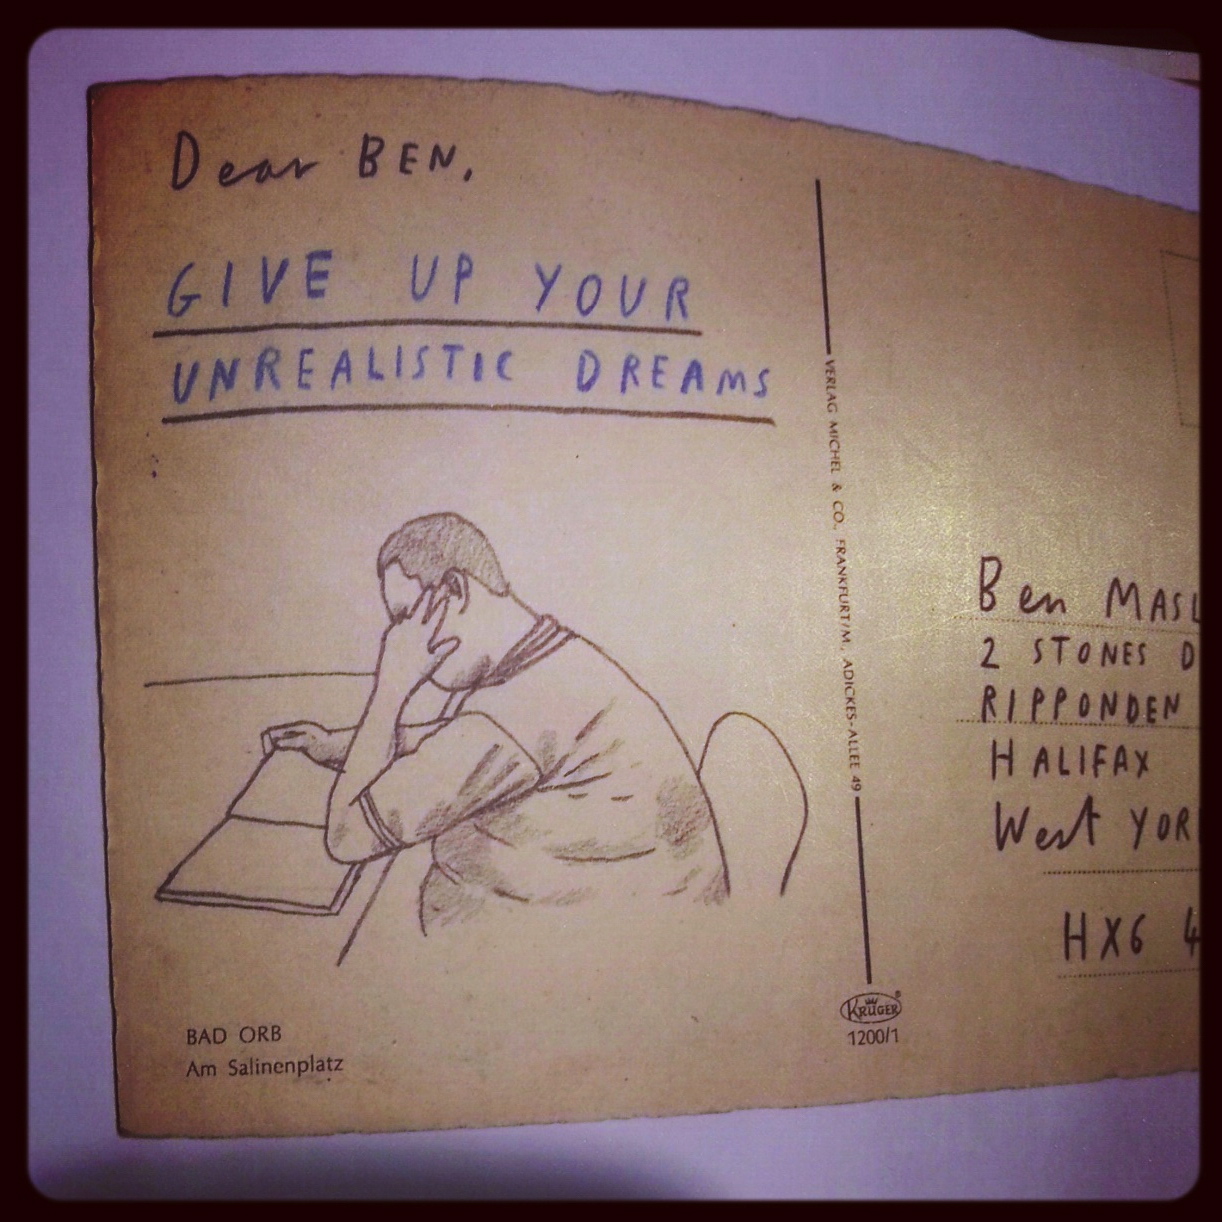 Dear BEN,
GIVE UP YOUR
UNREALISTIC DREAMS
BAD ORB
Am Salinenplatz
VERLAG MICHEL & CO., FRANKFURT/M., ADICKES-ALLEE 49
KRÜGER®
1200/1
Ben MASL
2 STONES D
RIPPONDEN
HALIFAX
West YOR
HX6 4